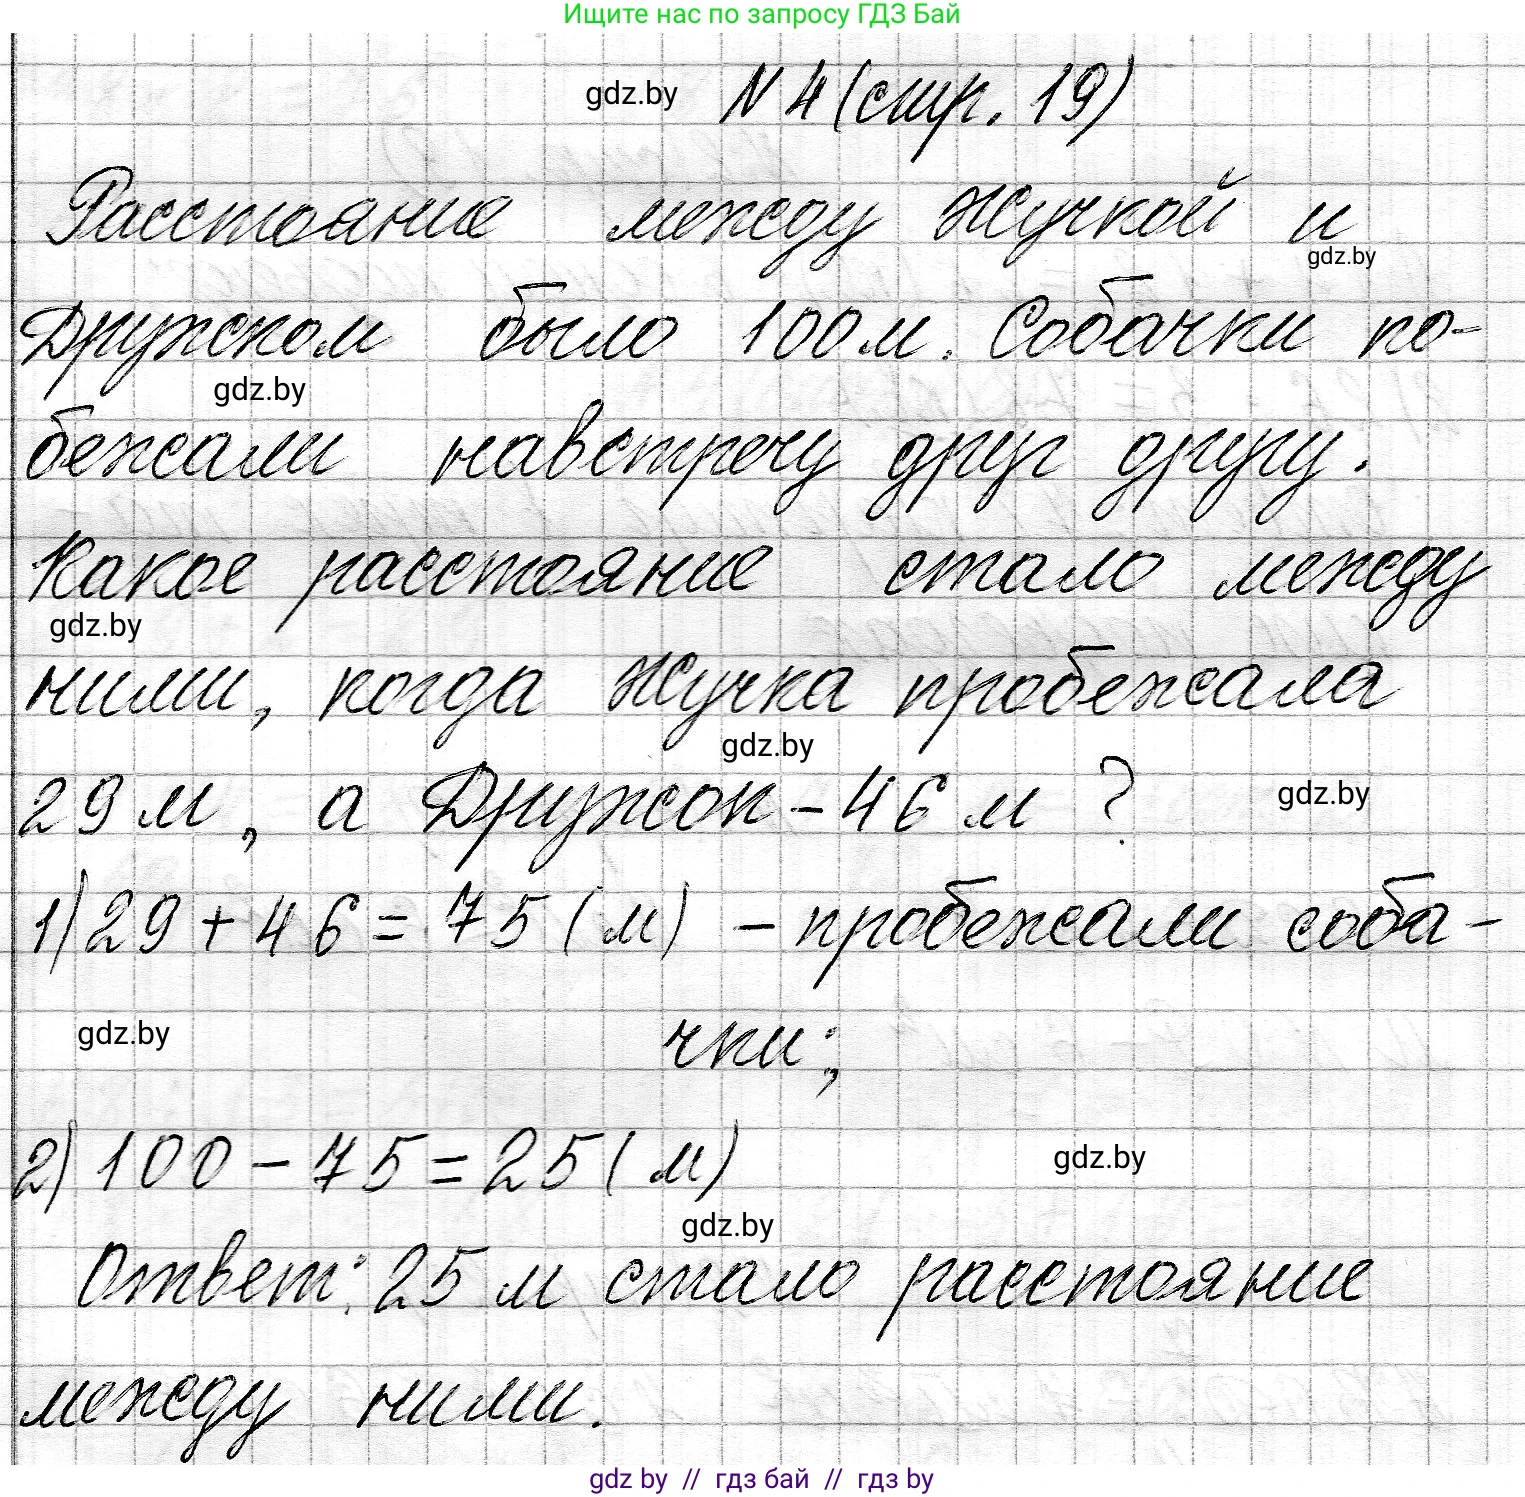 Ищите нас по запросу ГДЗ Бай
gdz.by N 4 (стр. 19)
Расстояние между Жучкой и
gdz.by
Дружком было 100 м. Собачки по-
gdz.by
бежали навстречу друг другу.
Какое расстояние стало между
gdz.by
ними, когда Жучка пробежала
gdz.by
29 м, а Дружок - 46 м ? gdz.by
1) 29 + 46 = 75 (м) - пробежали соба-
gdz.by чки;
2) 100 - 75 = 25 (м) gdz.by
gdz.by
Ответ: 25 м стало расстояние
между ними.
gdz by // гдз бай // гдз by